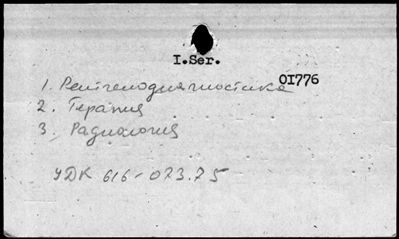 I.Ser.
OI776
1. Рентгенодиагностика
2. Терапия
3. Радиология
УДК 616-073.75